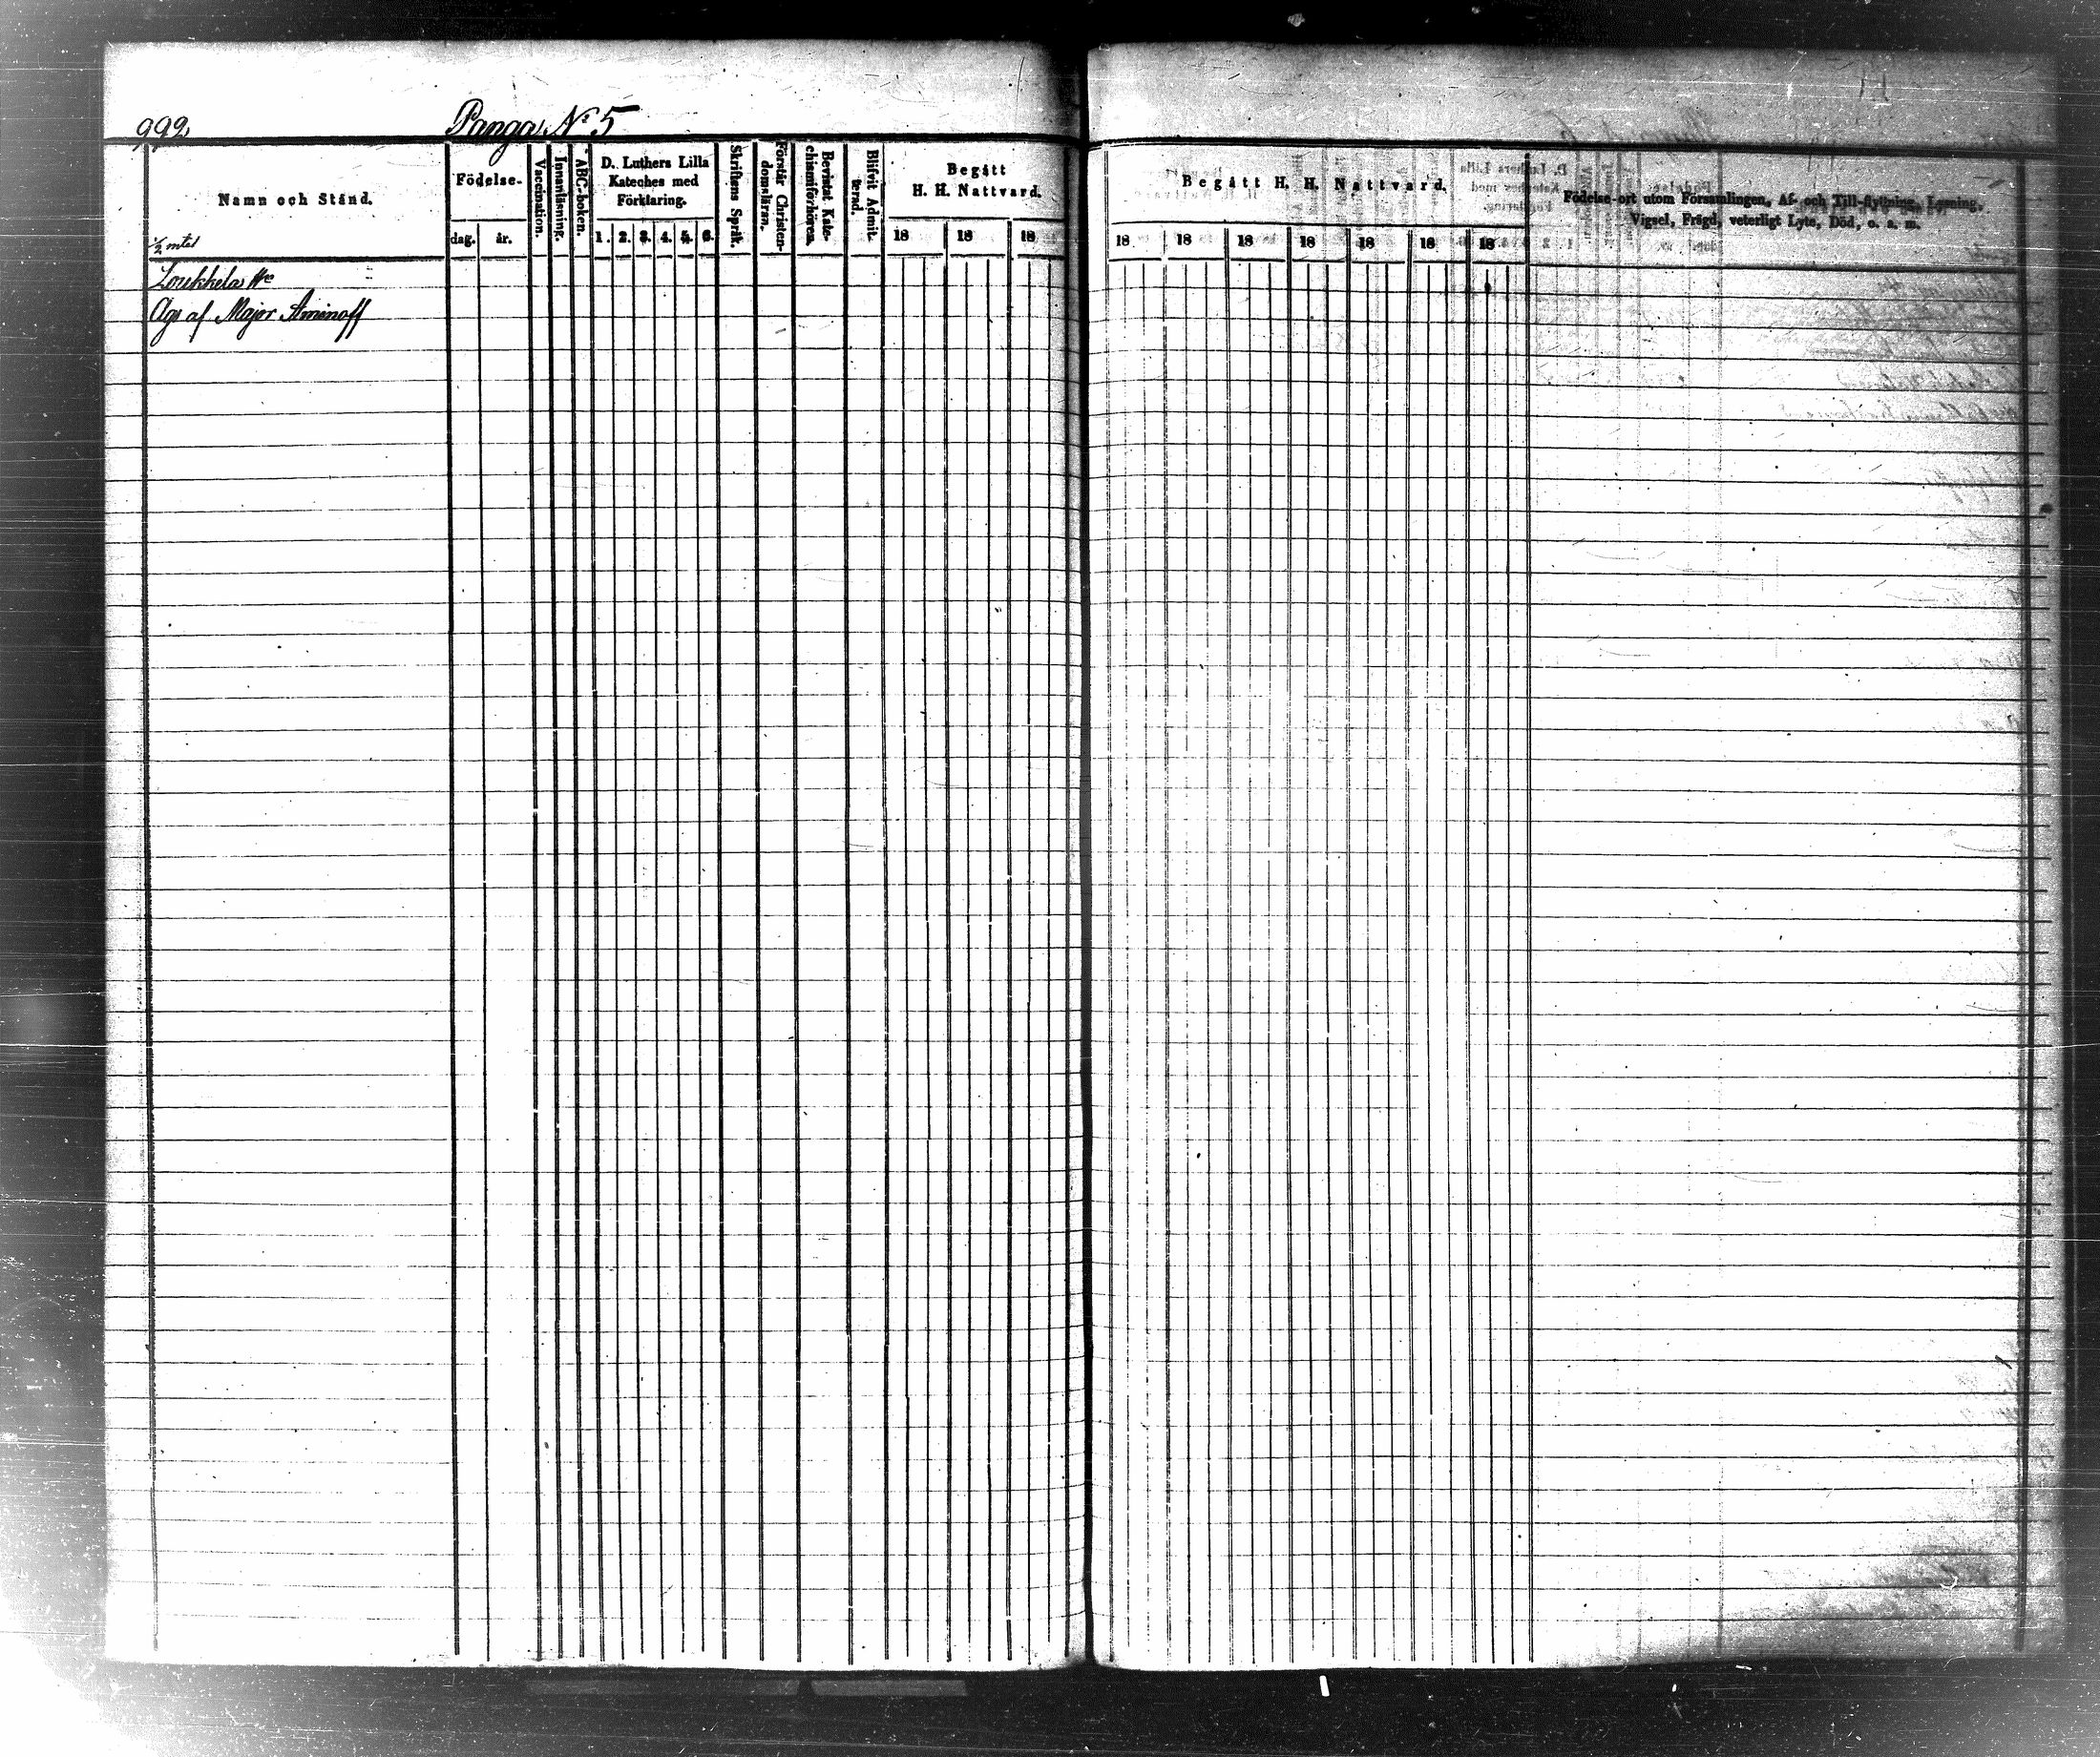 992
Panga N:o 5
Namn och Stånd.
½ mtal
Födelse-
dag.
år.
Vaccination.
Innanläsning.
ABC-boken.
D. Luthers Lilla
Kateches med
Förklaring.
1. 2. 3. 4. 5. 6.
Skriftens Språk.
Förstår Christen-
domsläran.
Bevistat Kate-
chismiförhören.
Blifvit Admit-
terad.
Begått
H. H. Nattvard.
18 18 18
Begått H. H. Nattvard.
18 18 18 18 18 18 18
Födelse-ort utom Församlingen, Af- och Till-flyttning, Lysning,
Vigsel, Frägd, veterligt Lyte, Död, o. s. m.
Loukkela
Äges af Major Aminoff